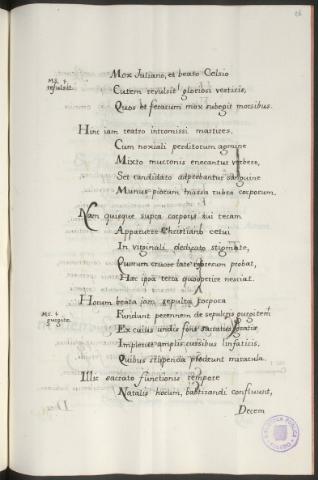 26
Mox Juliano, et beato Celsio
Ms. +
refulsit
Cutem revulsit gloriosi verticis,
Quos et ferarum mox subegit morsibus.
Hinc iam teatro intromissi martires,
Cum noxiali perditorum agmine
Mixto mucronis enecantur verbere,
Set candidato adprobantur sanguine
Munus piorum massa rubea corporum.
Nam quisque supra corporis sui tecam
Apparuere Christiano cetui
In virginali dedicato stigmate,
Quorum cruor late
probat,
Hac ipsa terra quooperire nesciat.
Horum beata jam sepulta corpora
Ms. +
gurgite
Fundunt perennem de sepulcris gurgitem
Ex cuius undis fons
Implevit amplis cursibus limfaticis,
Quibus stipendia prodeunt miracula.
Illic sacrato functionis tempore
Natalis horum, baptizandi confluunt,
Decem